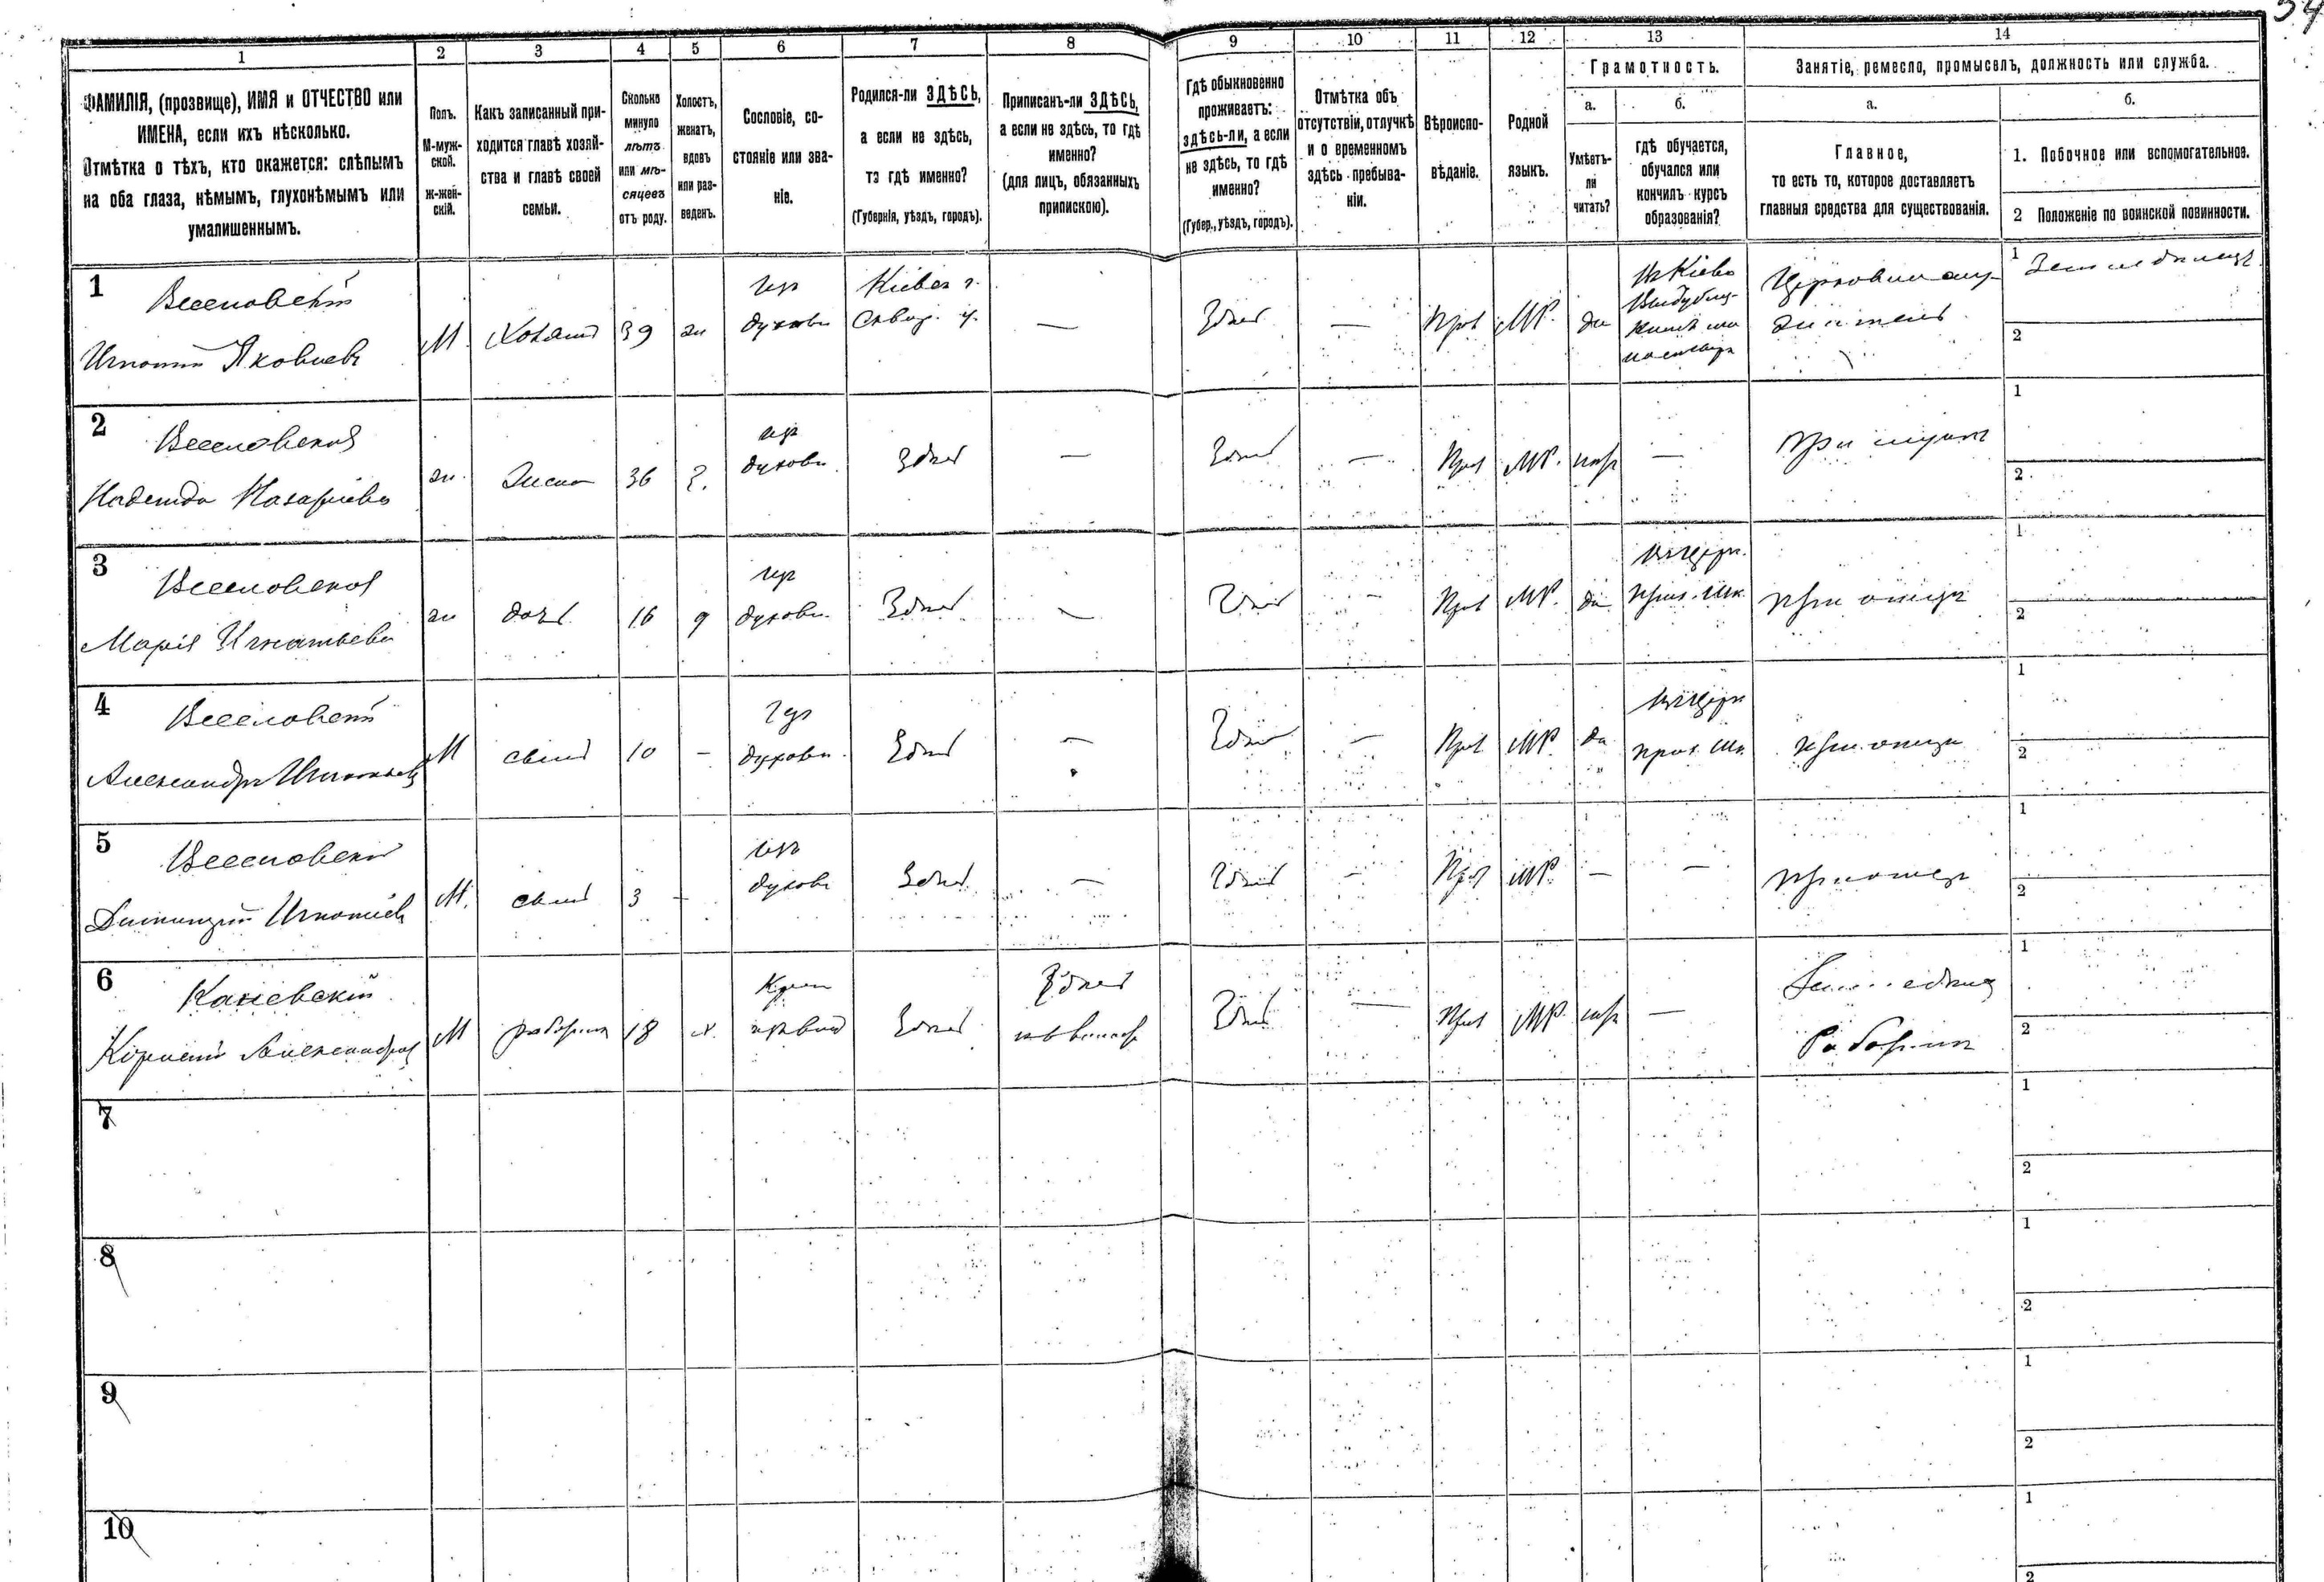 54
1 2 3 4 5 6 7 8 9 10 11 12 13 14
ФАМИЛІЯ, (прозвище), ИМЯ и ОТЧЕСТВО или
ИМЕНА, если ихъ нѣсколько.
Отмѣтка о тѣхъ, кто окажется: слѣпымъ
на оба глаза, нѣмымъ, глухонѣмымъ или
умалишеннымъ.
Полъ.
М-муж-
ской.
ж-жен-
скій.
Какъ записанный при-
ходится главѣ хозяй-
ства и главѣ своей
семьи.
Сколько
минуло
лѣтъ
или мѣ-
сяцевъ
отъ роду.
Холостъ,
женатъ,
вдовъ
или раз-
веденъ.
Сословіе, со-
стояніе или зва-
ніе.
Родился-ли ЗДѢСЬ,
а если не здѣсь,
тэ гдѣ именно?
(Губернія, уѣздъ, городъ).
Приписанъ-ли ЗДѢСЬ,
а если не здѣсь, то гдѣ
именно?
(для лицъ, обязанныхъ
припискою).
Гдѣ обыкновенно
проживаетъ:
здѣсь-ли, а если
не здѣсь, то гдѣ
именно?
(Губер., уѣздъ, городъ).
Отмѣтка объ
отсутствіи, отлучкѣ
и о временномъ
здѣсь пребыва-
ніи.
Вѣроиспо-
вѣданіе.
Родной
языкъ.
Грамотность.
а.
Умѣетъ-
ли
читать?
б.
гдѣ обучается,
обучался или
кончилъ курсъ
образованія?
Занятіе, ремесло, промыселъ, должность или служба.
а.
Главное,
то есть то, которое доставляетъ
главныя средства для существованія.
б.
1. Побочное или вспомогательное.
2 Положеніе по воинской повинности.
1
Веселовскій
Игнатій Яковлевъ
М. Хозяинъ 39 ж
из
духовн
Кіевск г.
Сквир. у.
—
Здѣсь — Прав МР. да
Въ Кіево
1
2
2
Веселовская
Надежда Назаріева
ж. Жена 36 З.
из
духовн.
Здѣсь —
Здѣсь — Прав МР. негр —
при мужѣ
1
2
3
Веселовская
Марія Игнатьева
ж дочь 16 д
из
духовн.
Здѣсь —
Здѣсь — Прав МР. да
въ Церк.
прих. шк.
при отцѣ
1
2
4
Веселовскій
Александръ Игнатьевъ
М сынъ 10 —
из
духовн.
Здѣсь —
Здѣсь — Прав МР. да
въ Церк
прих. шк.
при отцѣ
1
2
5
Веселовскій
Игнатіевъ
М. сынъ 3 —
из
духовн
Здѣсь —
Здѣсь — Прав МР. — —
при отцѣ
1
2
6
Каневскій
Александров
М работник 18 х.
Здѣсь
Здѣсь
Здѣсь — Прав МР. негр —
Работник
1
2
7
1
2
8
1
2
9
1
2
10
1
2